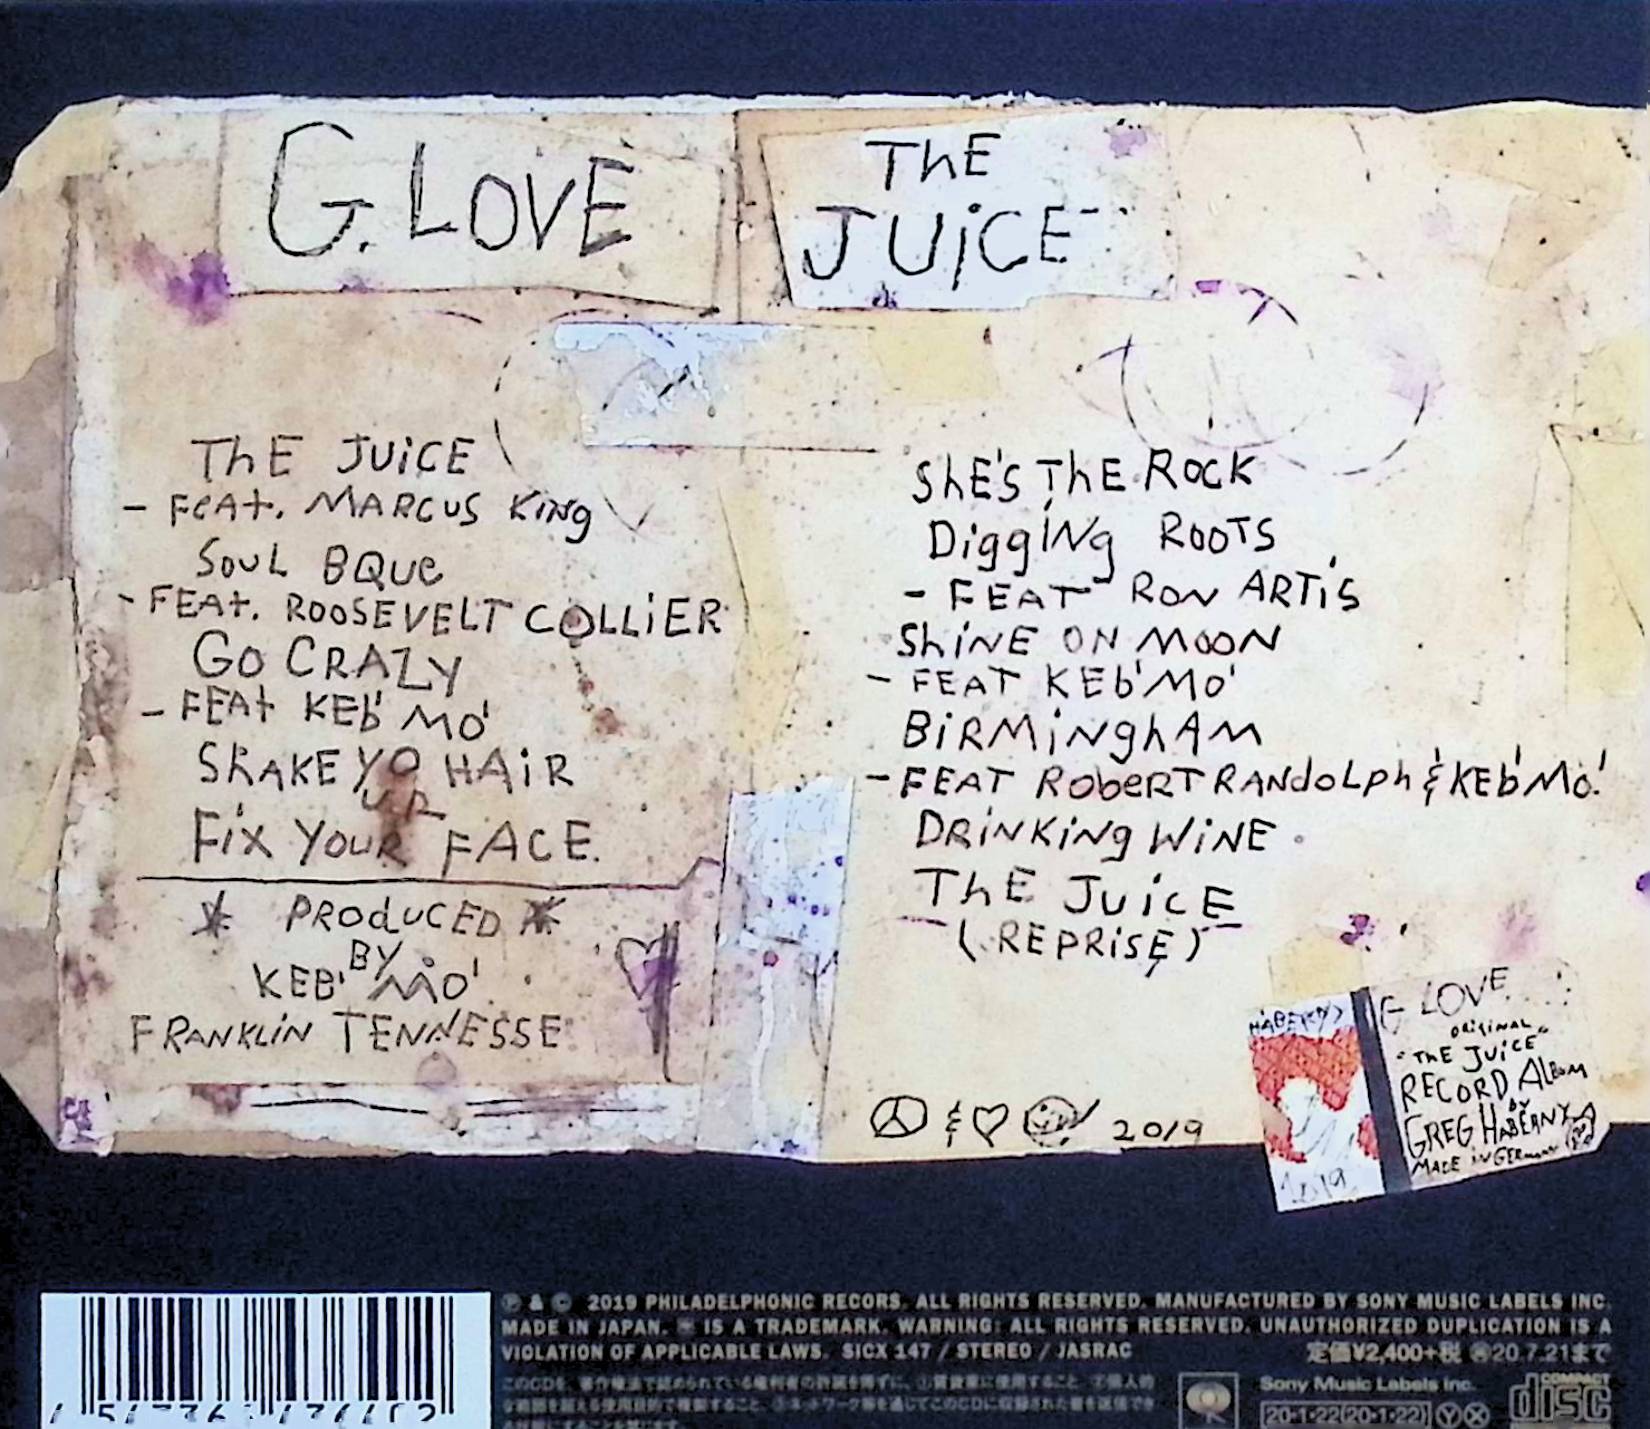 G. LOVE
ThE
JUiCE
ThE JUiCE
- FeAt. MARCUS KiNg
SoUL BQUe
- FEAt. ROOSEVELT COLLiER
GO CRAZY
- FEAt KEb' MO'
ShAKE YO HAiR
UR
Fix YOUR FACE.
* PRODUCED *
BY
KEB' MO'
FRANKLiN TENNESSE
ShE'S ThE ROCK
DiggiNg ROOTS
- FEAT RON ARTiS
ShiNE ON MOON
- FEAT KEb' MO'
BiRMiNghAM
- FEAT RobeRT RANdoLPh & KEb' MO'
DRiNKiNg WiNE
ThE JUiCE
(REPRiSE)
& 2019
G LOVE
ORiGiNAL
"ThE JUiCE"
RECORD ALbum
by
GREG HABEANY
MADE iN GERmany
2019
Ⓟ & © 2019 PHILADELPHONIC RECORS. ALL RIGHTS RESERVED. MANUFACTURED BY SONY MUSIC LABELS INC.
MADE IN JAPAN. IS A TRADEMARK. WARNING: ALL RIGHTS RESERVED. UNAUTHORIZED DUPLICATION IS A
VIOLATION OF APPLICABLE LAWS. SICX 147 / STEREO / JASRAC
定価¥2,400+税 20.7.21まで
Sony Music Labels Inc.
20-1-22(20-1-22) Ⓨ Ⓧ
COMPACT
disc